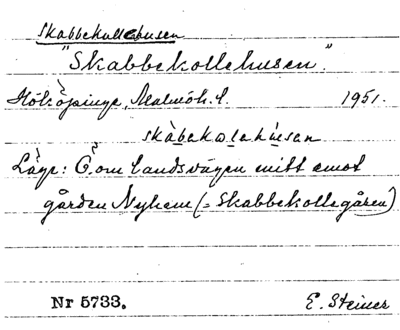 Skabbekollehusen
"Skabbekollehusen".
Hököpinge, Malmöh. l. 1951.
skàbəkɷləhùsən
Läge: Ö. om landsvägen mitt emot
gården Nyhem (= Skabbekollegården)
Nr 5733. E. Steiner